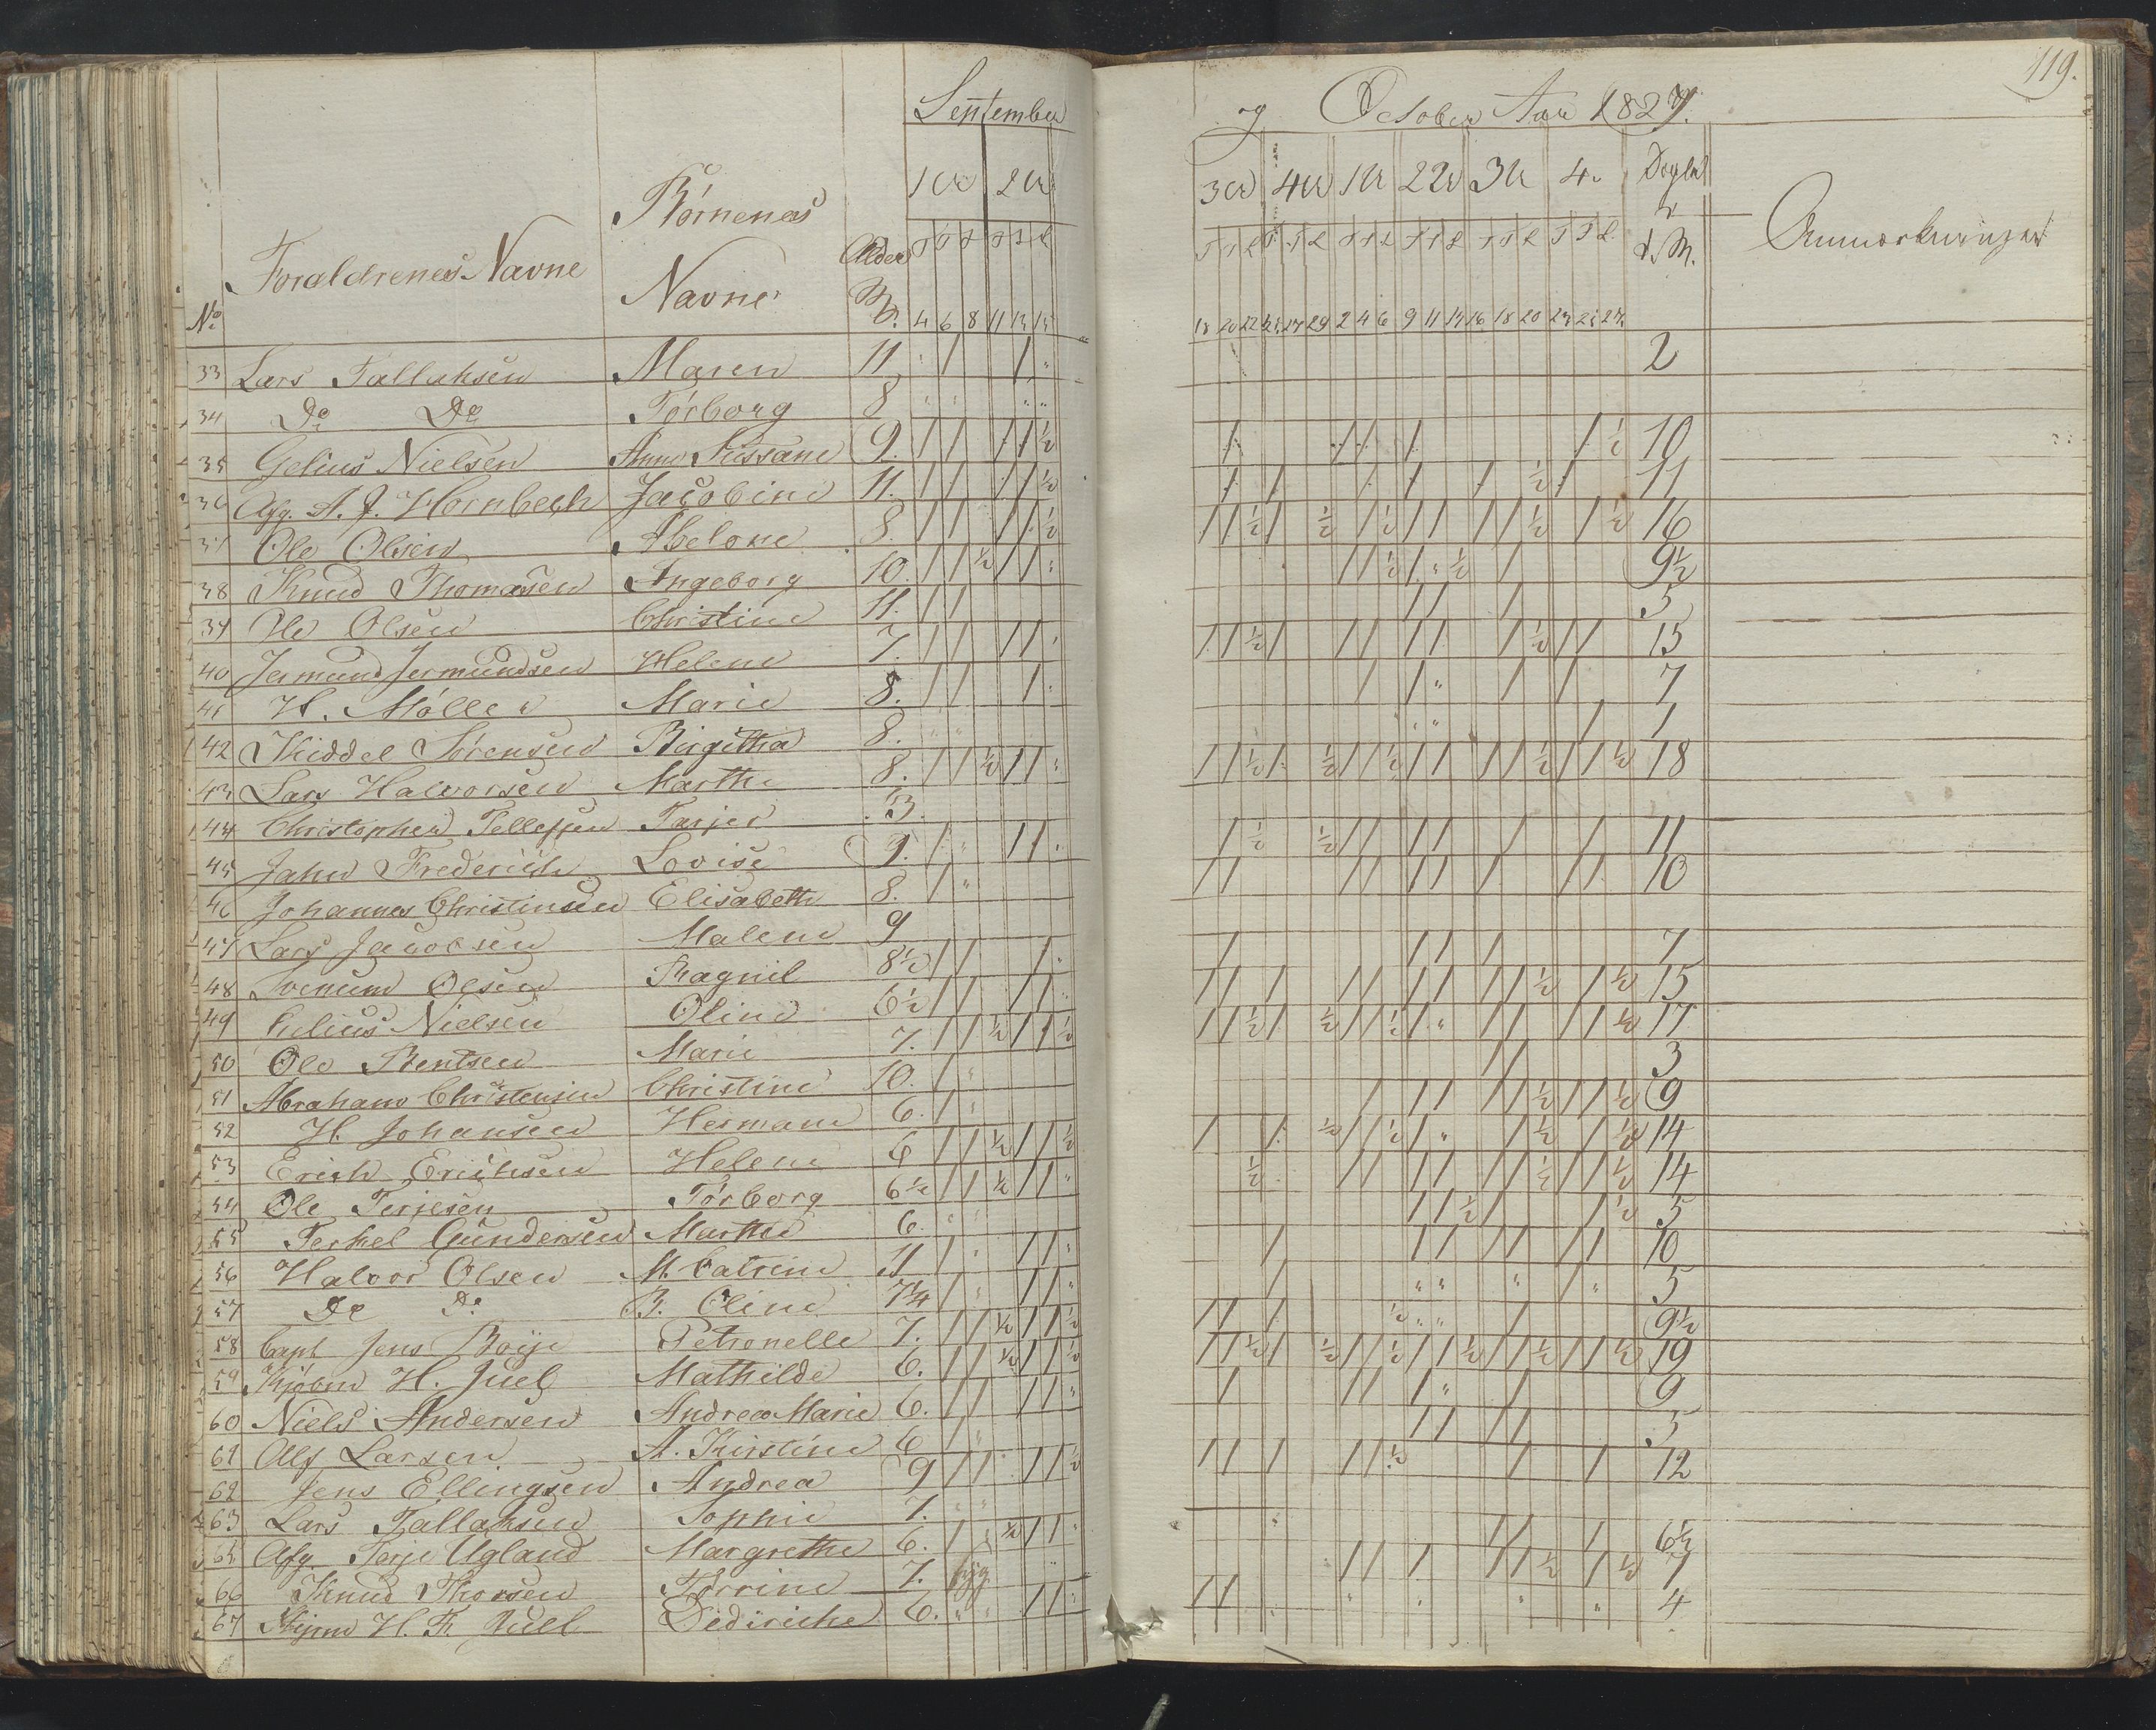 119.
September
og October Aar 1827.
No Forældrenes Navne Børnenes Navne Alder
1 2 3 4 1 2 3 4
4 6 8 11 13 15 18 20 22 25 27 29 2 4 6 9 11 13 16 18 20 23 25 27
Anmærkninger
33 Lars Tallaksen Maren 11 2
34 Do Do Torborg 8
35 Gelius Nielsen Anne Sussane 9. 10
36 Afg. A. J. Hornbech Jacobine 11. 11
37 Ole Olsen Abelone 8. 16
38 Knud Thomasen Ingeborg 10. 9½
39 Ole Olsen Christine 11. 5
40 Jermund Jermundsen Helene 7. 15
41 H. Møller Marie 8. 7
42 Kiddel Sørensen Birgitha 8. 1
43 Lars Halvorsen Marthe 8. 18
44 Christopher Tellefsen Tarjer
45 Jahn Frederich Lovise 9. 11
46 Johannes Christinsen Elisabeth 8. 10
47 Lars Jacobsen Malene 9
48 Olsen Ragnil 8½ 7
49 Julius Nielsen Oline 6½ 15
50 Ole Bentsen Marie 7. 17
51 Abraham Christensen Christine 10. 3
52 H. Johansen Hermane 6. 9
53 Erich Erichsen Helene 6 14
54 Ole Terjesen Torborg 6½ 14
55 Terkel Gundersen Marthe 6. 5
56 Halvor Olsen M. Catrine 11 10
57 Do Do B. Oline 7¼ 5
58 Capt Jens Boije Petronelle 7. 9½
59 Kjøbm H. Juel Mathilde 6. 19
60 Niels Andersen Andrea Marie 6. 9
61 Alf Larsen A. Kirstine 6 5
62 Jens Ellingsen Andrea 9 12
63 Lars Tallaksen Sophie 7.
65 Afg Terje Ugland Margrethe 6. 6½
66 Knud Thorsen Torrine 7. syg 7
67 Kjøm H. Fr. Juell Dediriche 6. 4